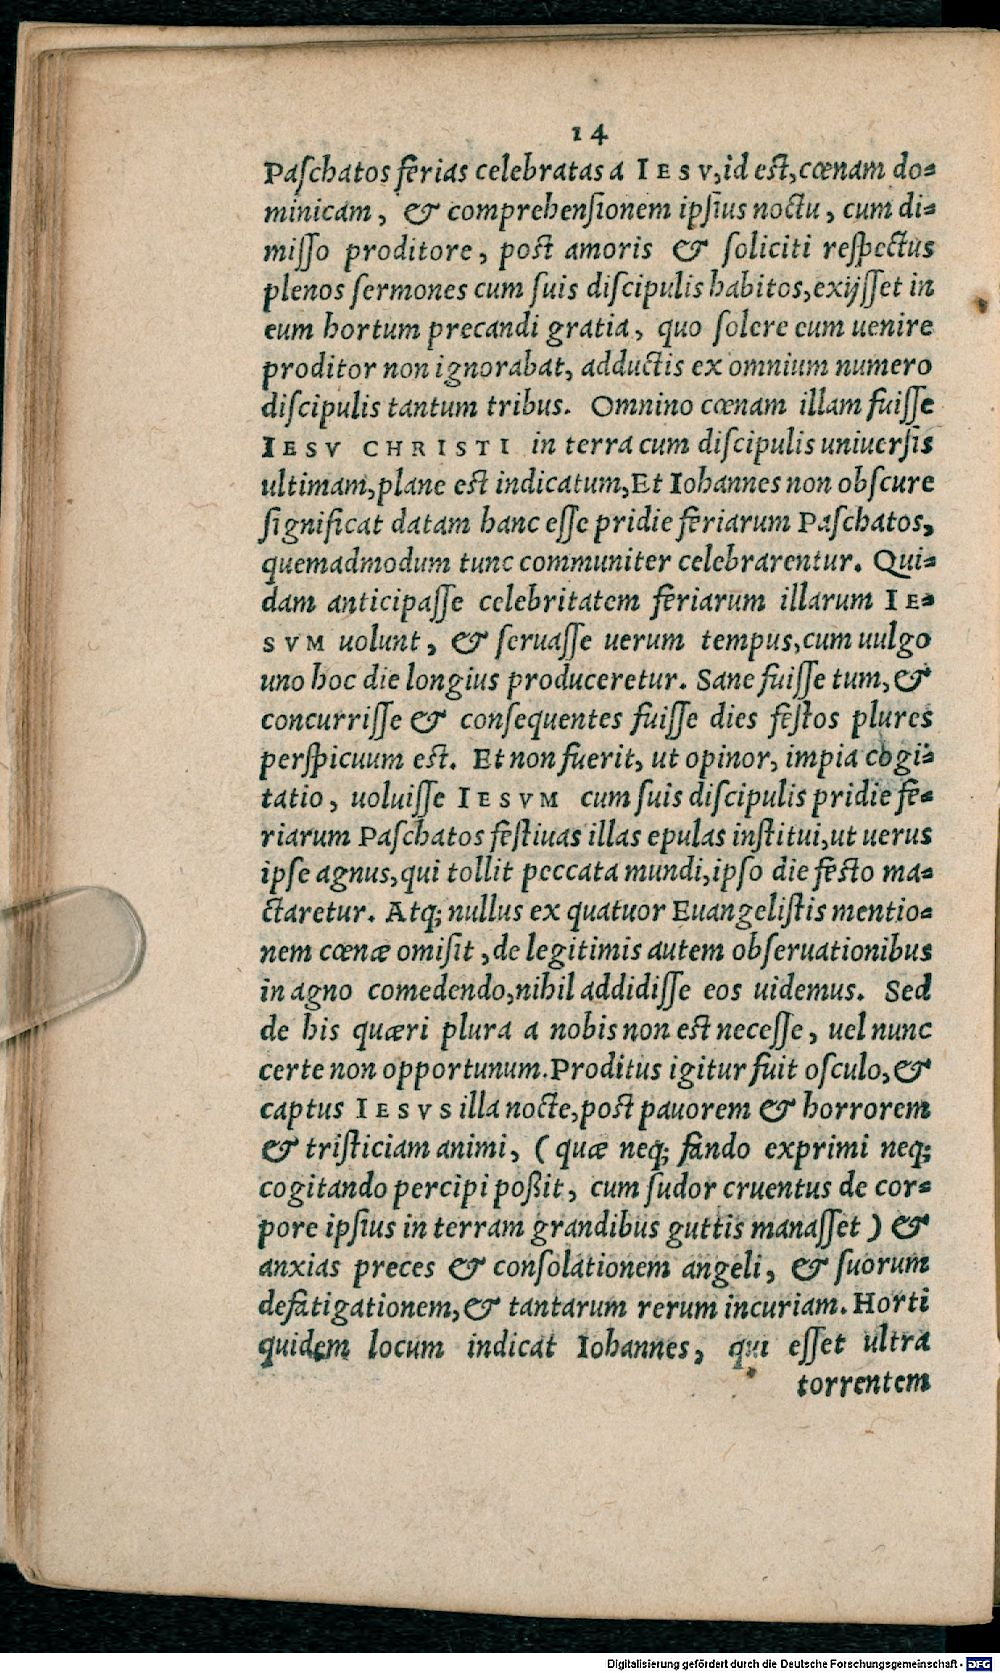 14
Paſchatos ferias celebratas a IESV, id eſt, cœnam do⸗
minicam, & comprehenſionem ipſius noctu, cum di⸗
miſſo proditore, poſt amoris & ſoliciti reſpectus
plenos ſermones cum ſuis diſcipulis habitos, exijſſet in
eum hortum precandi gratia, quo ſolere eum uenire
proditor non ignorabat, adductis ex omnium numero
diſcipulis tantum tribus. Omnino cœnam illam fuiſſe
IESV CHRISTI in terra cum diſcipulis uniuerſis
ultimam, plane eſt indicatum, Et Iohannes non obſcure
ſignificat datam hanc eſſe pridie feriarum Paſchatos,
quemadmodum tunc communiter celebrarentur. Qui⸗
dam anticipaſſe celebritatem feriarum illarum IE⸗
SVM uolunt, & ſeruaſſe uerum tempus, cum uulgo
uno hoc die longius produceretur. Sane fuiſſe tum, &
concurriſſe & conſequentes fuiſſe dies feſtos plures
perſpicuum eſt. Et non fuerit, ut opinor, impia cogi⸗
tatio, uoluiſſe IESVM cum ſuis diſcipulis pridie fe⸗
riarum Paſchatos feſtiuas illas epulas inſtitui, ut uerus
ipſe agnus, qui tollit peccata mundi, ipſo die feſto ma⸗
ctaretur. Atq; nullus ex quatuor Euangeliſtis mentio⸗
nem cœnæ omiſit, de legitimis autem obſeruationibus
in agno comedendo, nihil addidiſſe eos uidemus. Sed
de his quæri plura a nobis non eſt neceſſe, uel nunc
certe non opportunum. Proditus igitur fuit oſculo, &
captus IESVS illa nocte, poſt pauorem & horrorem
& triſticiam animi, (quæ neq; fando exprimi neq;
cogitando percipi poßit, cum ſudor cruentus de cor⸗
pore ipſius in terram grandibus guttis manaſſet) &
anxias preces & conſolationem angeli, & ſuorum
defatigationem, & tantarum rerum incuriam. Horti
quidem locum indicat Iohannes, qui eſſet ultra
torrentem
Digitalisierung gefördert durch die Deutsche Forschungsgemeinschaft - DFG